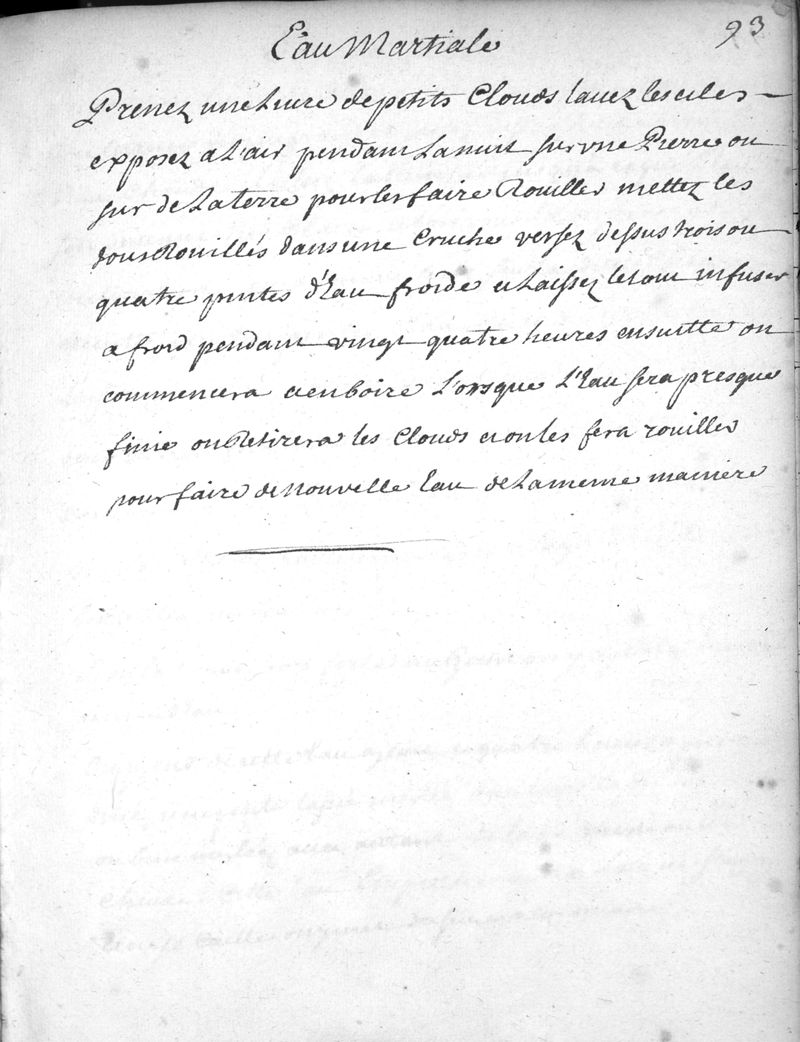 93
Eau Martiale
Prenez une Livre de petits Clouds lavez les et les
exposez a L'air pendant La nuit sur une Pierre ou
sur de La terre pour les faire Rouiller mettez les
clous Rouillés dans une Cruche versez dessus trois ou
quatre pintes d'Eau froide et Laissez le tout infuser
a froid pendant vingt quatre heures ensuitte on
commencera a en boire L'orsque L'Eau sera presque
finie on Retirera les Clouds et on les fera rouiller
pour faire de Nouvelle Eau de La meme maniere